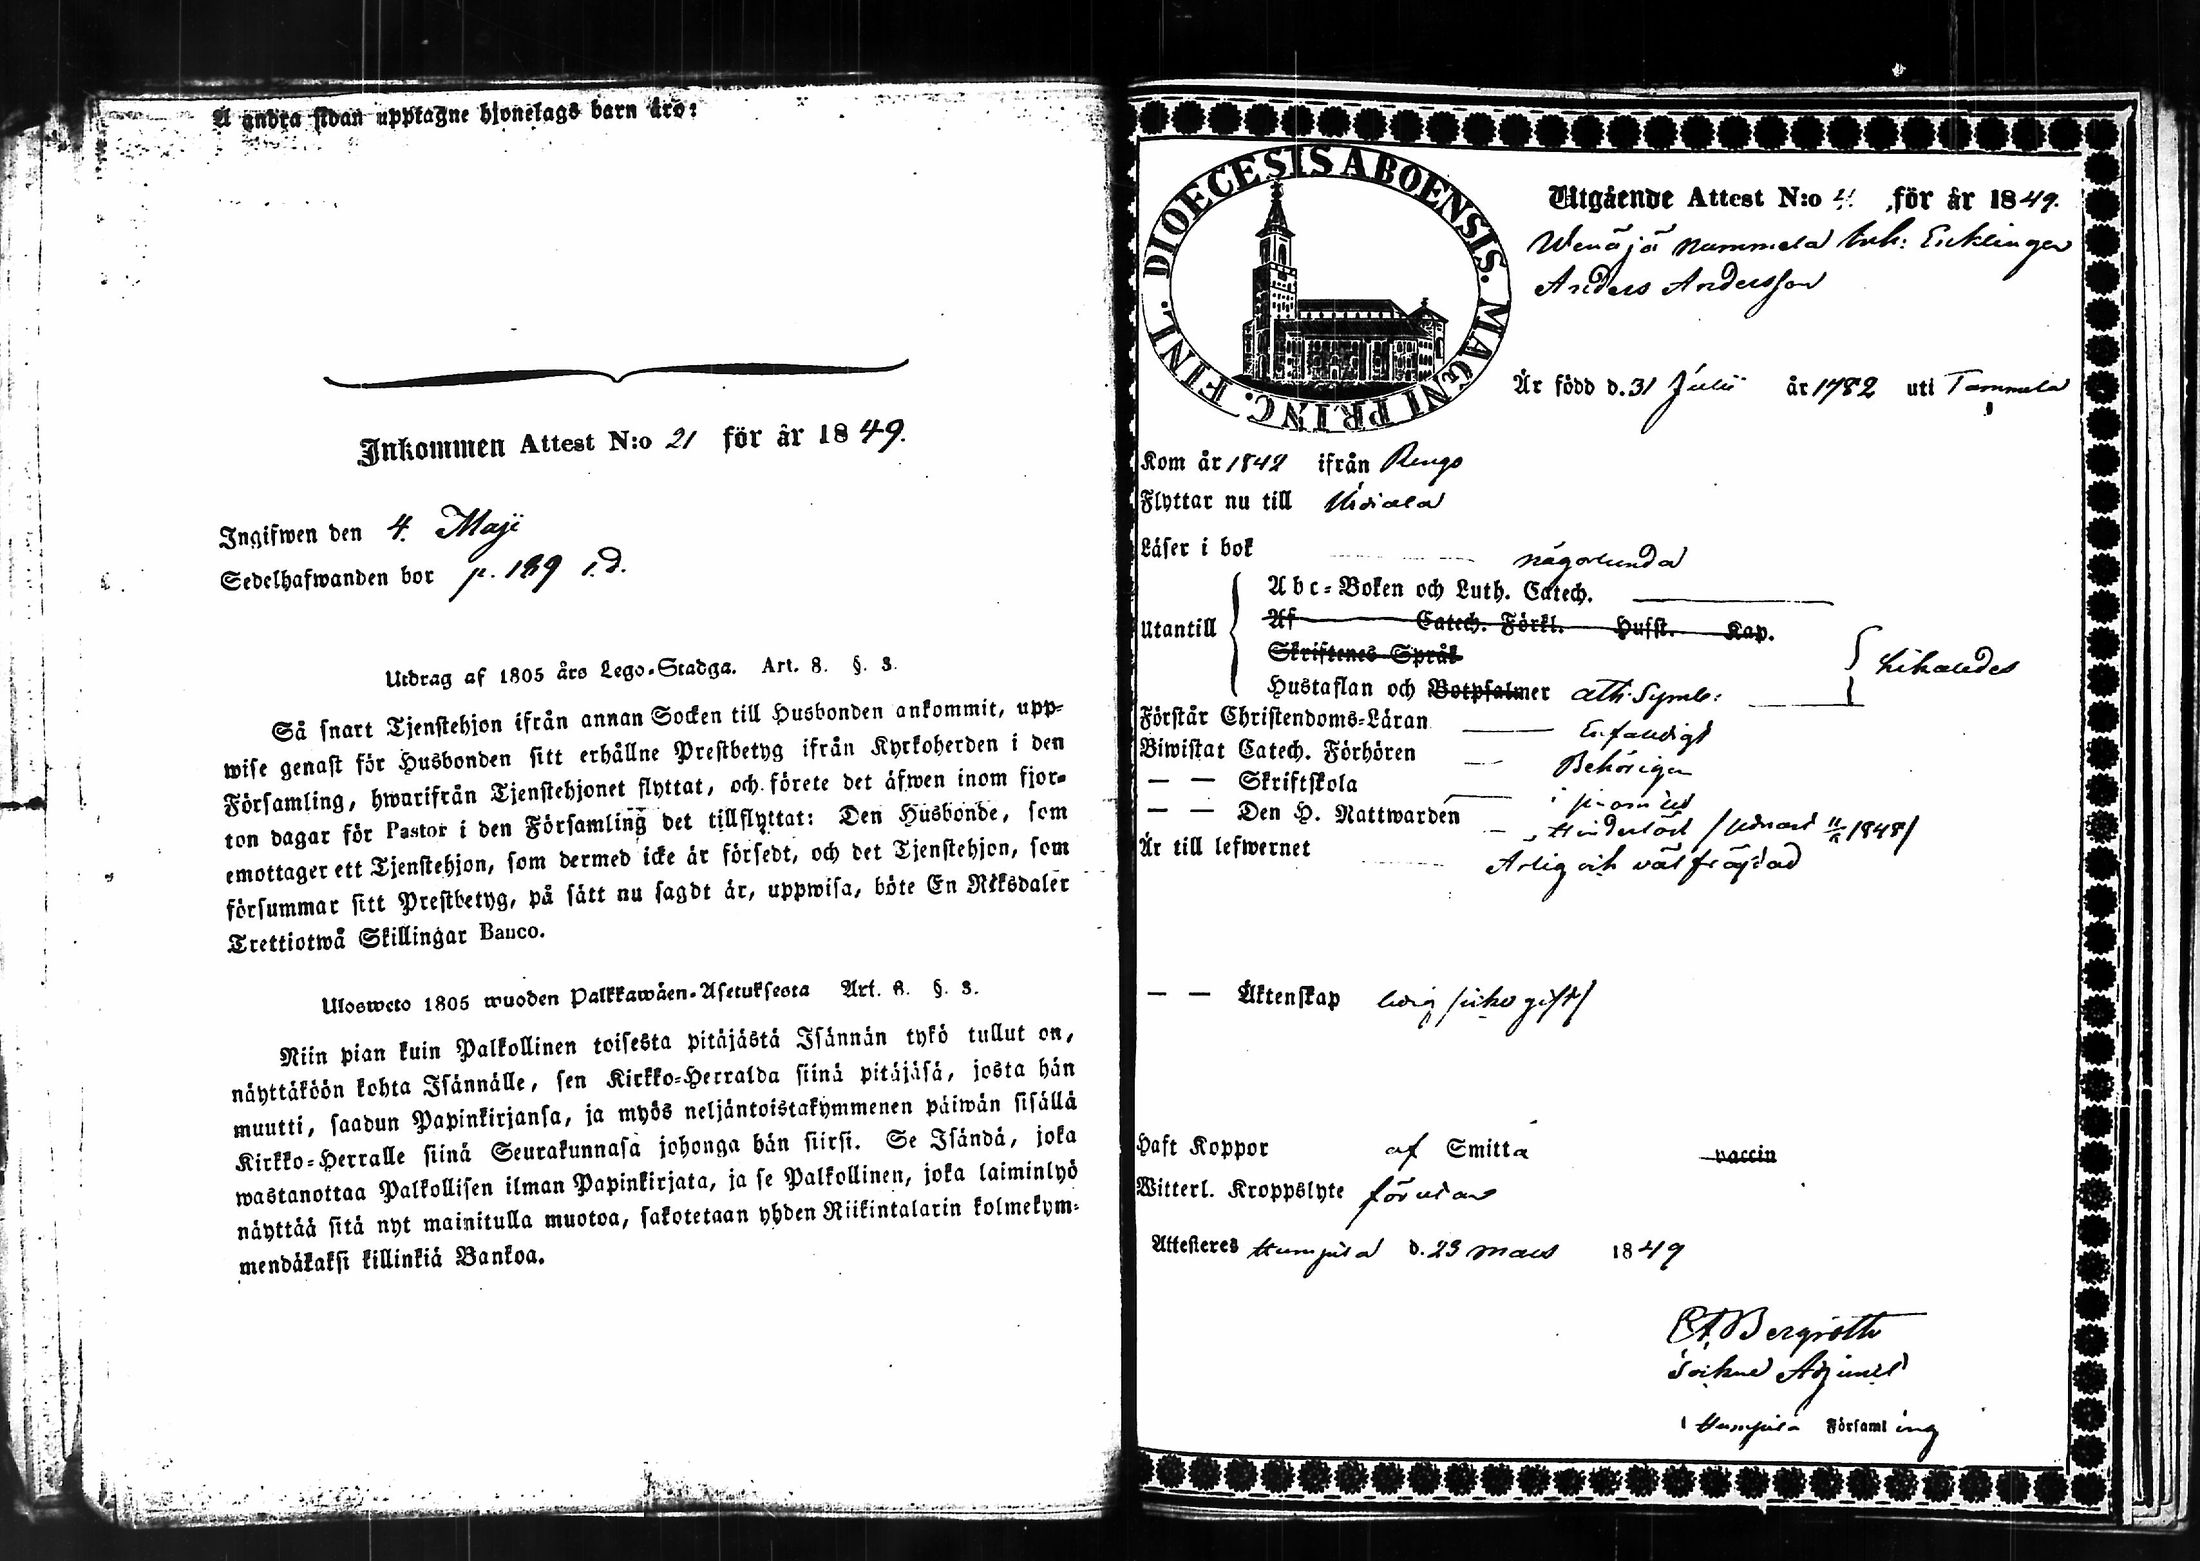 Å andra sidan upptagne hjonelags barn äro:
Inkommen Attest N:o 21 för år 1849.
Ingifwen den 4. Maji
Sedelhafwanden bor p. 189 i.d.
Utdrag af 1805 års Lego-Stadga. Art. 8. §. 3.
Så snart Tjenstehjon ifrån annan Socken till Husbonden ankommit, upp-
wise genast för Husbonden sitt erhållne Prestbetyg ifrån Kyrkoherden i den
Församling, hwarifrån Tjenstehjonet flyttat, och förete det äfwen inom fjor-
ton dagar för Pastor i den Församling det tillflyttat: Den Husbonde, som
emottager ett Tjenstehjon, som dermed icke är försedt, och det Tjenstehjon, som
försummar sitt Prestbetyg, på sätt nu sagdt är, uppwisa, böte En Riksdaler
Trettiotwå Skillingar Banco.
Ulosweto 1805 wuoden Palkkawäen-Asetuksesta Art. 8. §. 3.
Niin pian kuin Palkollinen toisesta pitäjästä Isännän tykö tullut on,
näyttäköön kohta Isännälle, sen Kirkko-Herralda siinä pitäjäsä, josta hän
muutti, saadun Papinkirjansa, ja myös neljäntoistakymmenen päiwän sisällä
Kirkko-Herralle siinä Seurakunnasa johonga hän siirsi. Se Isändä, joka
wastanottaa Palkollisen ilman Papinkirjata, ja se Palkollinen, joka laiminlyö
näyttää sitä nyt mainitulla muotoa, sakotetaan yhden Riikintalarin kolmekym-
mendäkaksi killinkiä Bankoa.
DIOECESIS ABOENSIS. MAGNI PRINC. FINL.
Utgående Attest N:o 4. för år 1849.
Wenäjä Nummela Inh: Enklingen
Anders Andersson
Är född d. 31 Julii år 1782 uti Tammela
Kom år 1842 ifrån Rengo
Flyttar nu till Urdiala
Läser i bok någorlunda
Utantill
Abc-Boken och Luth. Catech.
Af Catech. Förkl. Husst. Kap.
Skriftenes Språk
Hustaflan och Botpsalmer Ath: Symb:
likaledes
Förstår Christendoms-Läran Enfaldigt
Biwistat Catech. Förhören Behörigen
— — Skriftskola
— — Den H. Nattwarden
Är till lefwernet Ärlig och välfrägdad
— — Äktenskap ledig /icke gift/
Haft Koppor af Smitta vaccin
Witterl. Kroppslyte förutan
Attesteres Humppila d. 23 Mars 1849
Bergroth
Sockne Adjunct
i Humppila Församling